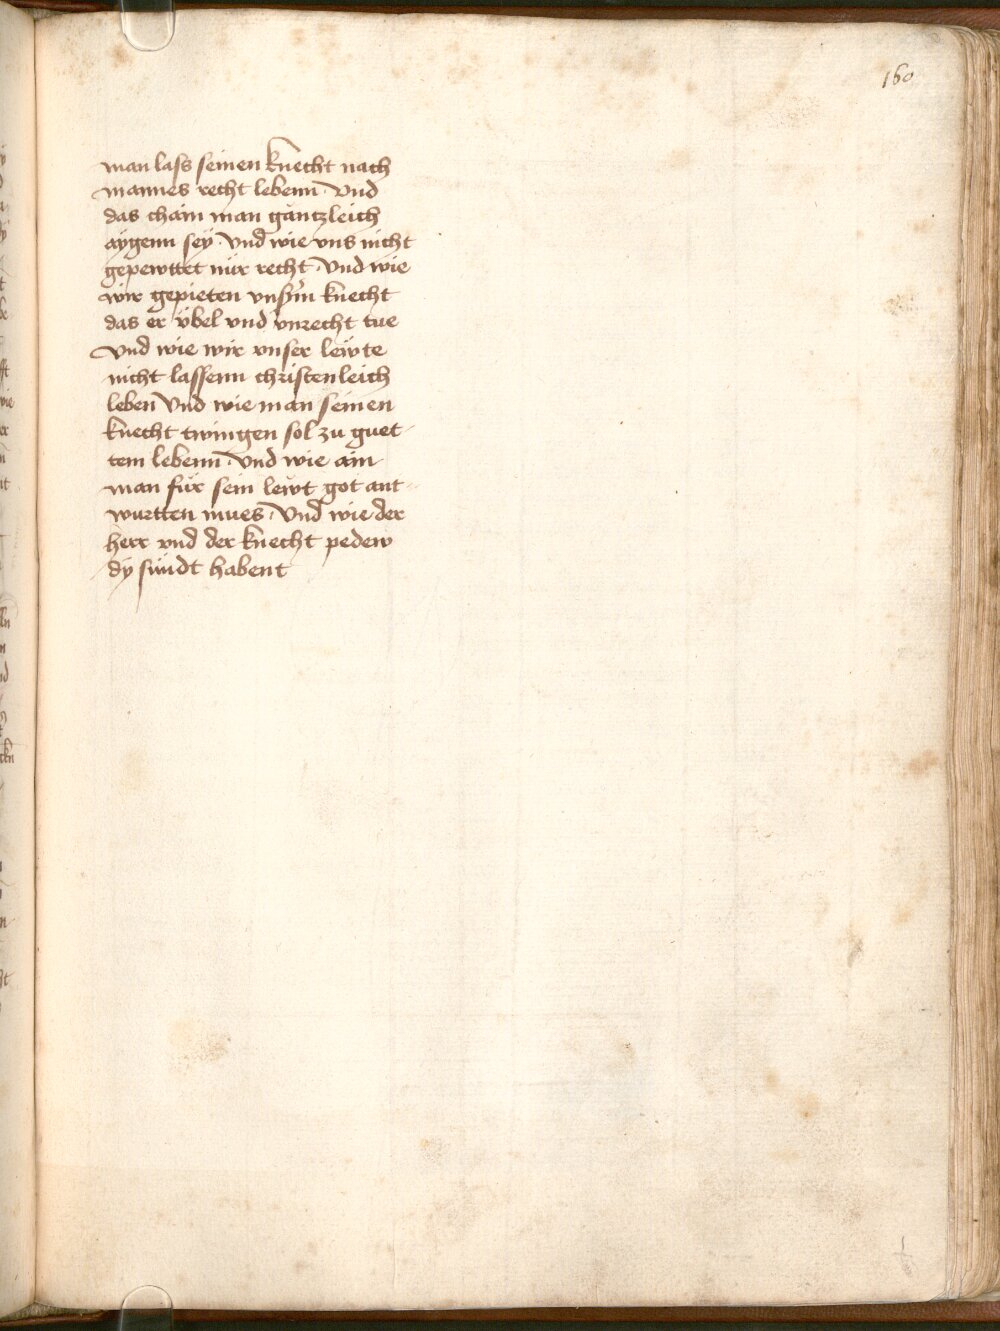 160
man lass seinen knecht nach
mannes recht lebenn · Vnd
das chain man gäntzleich
aÿgenn seÿ · Vnd wie vns nicht
gepewttet nür recht · Vnd wie
wir gepieten vnserm knecht
das er übel vnd vnrecht tue
Vnd wie wir vnser lewte
nicht lassenn christenleich
leben Vnd wie man seinen
knecht twingen sol zu guet-
tem lebenn · Vnd wie ain
man für sein lewt got ant-
wurtten mues · Vnd wie der
herr vnd der knecht pedew
dÿ sündt habent